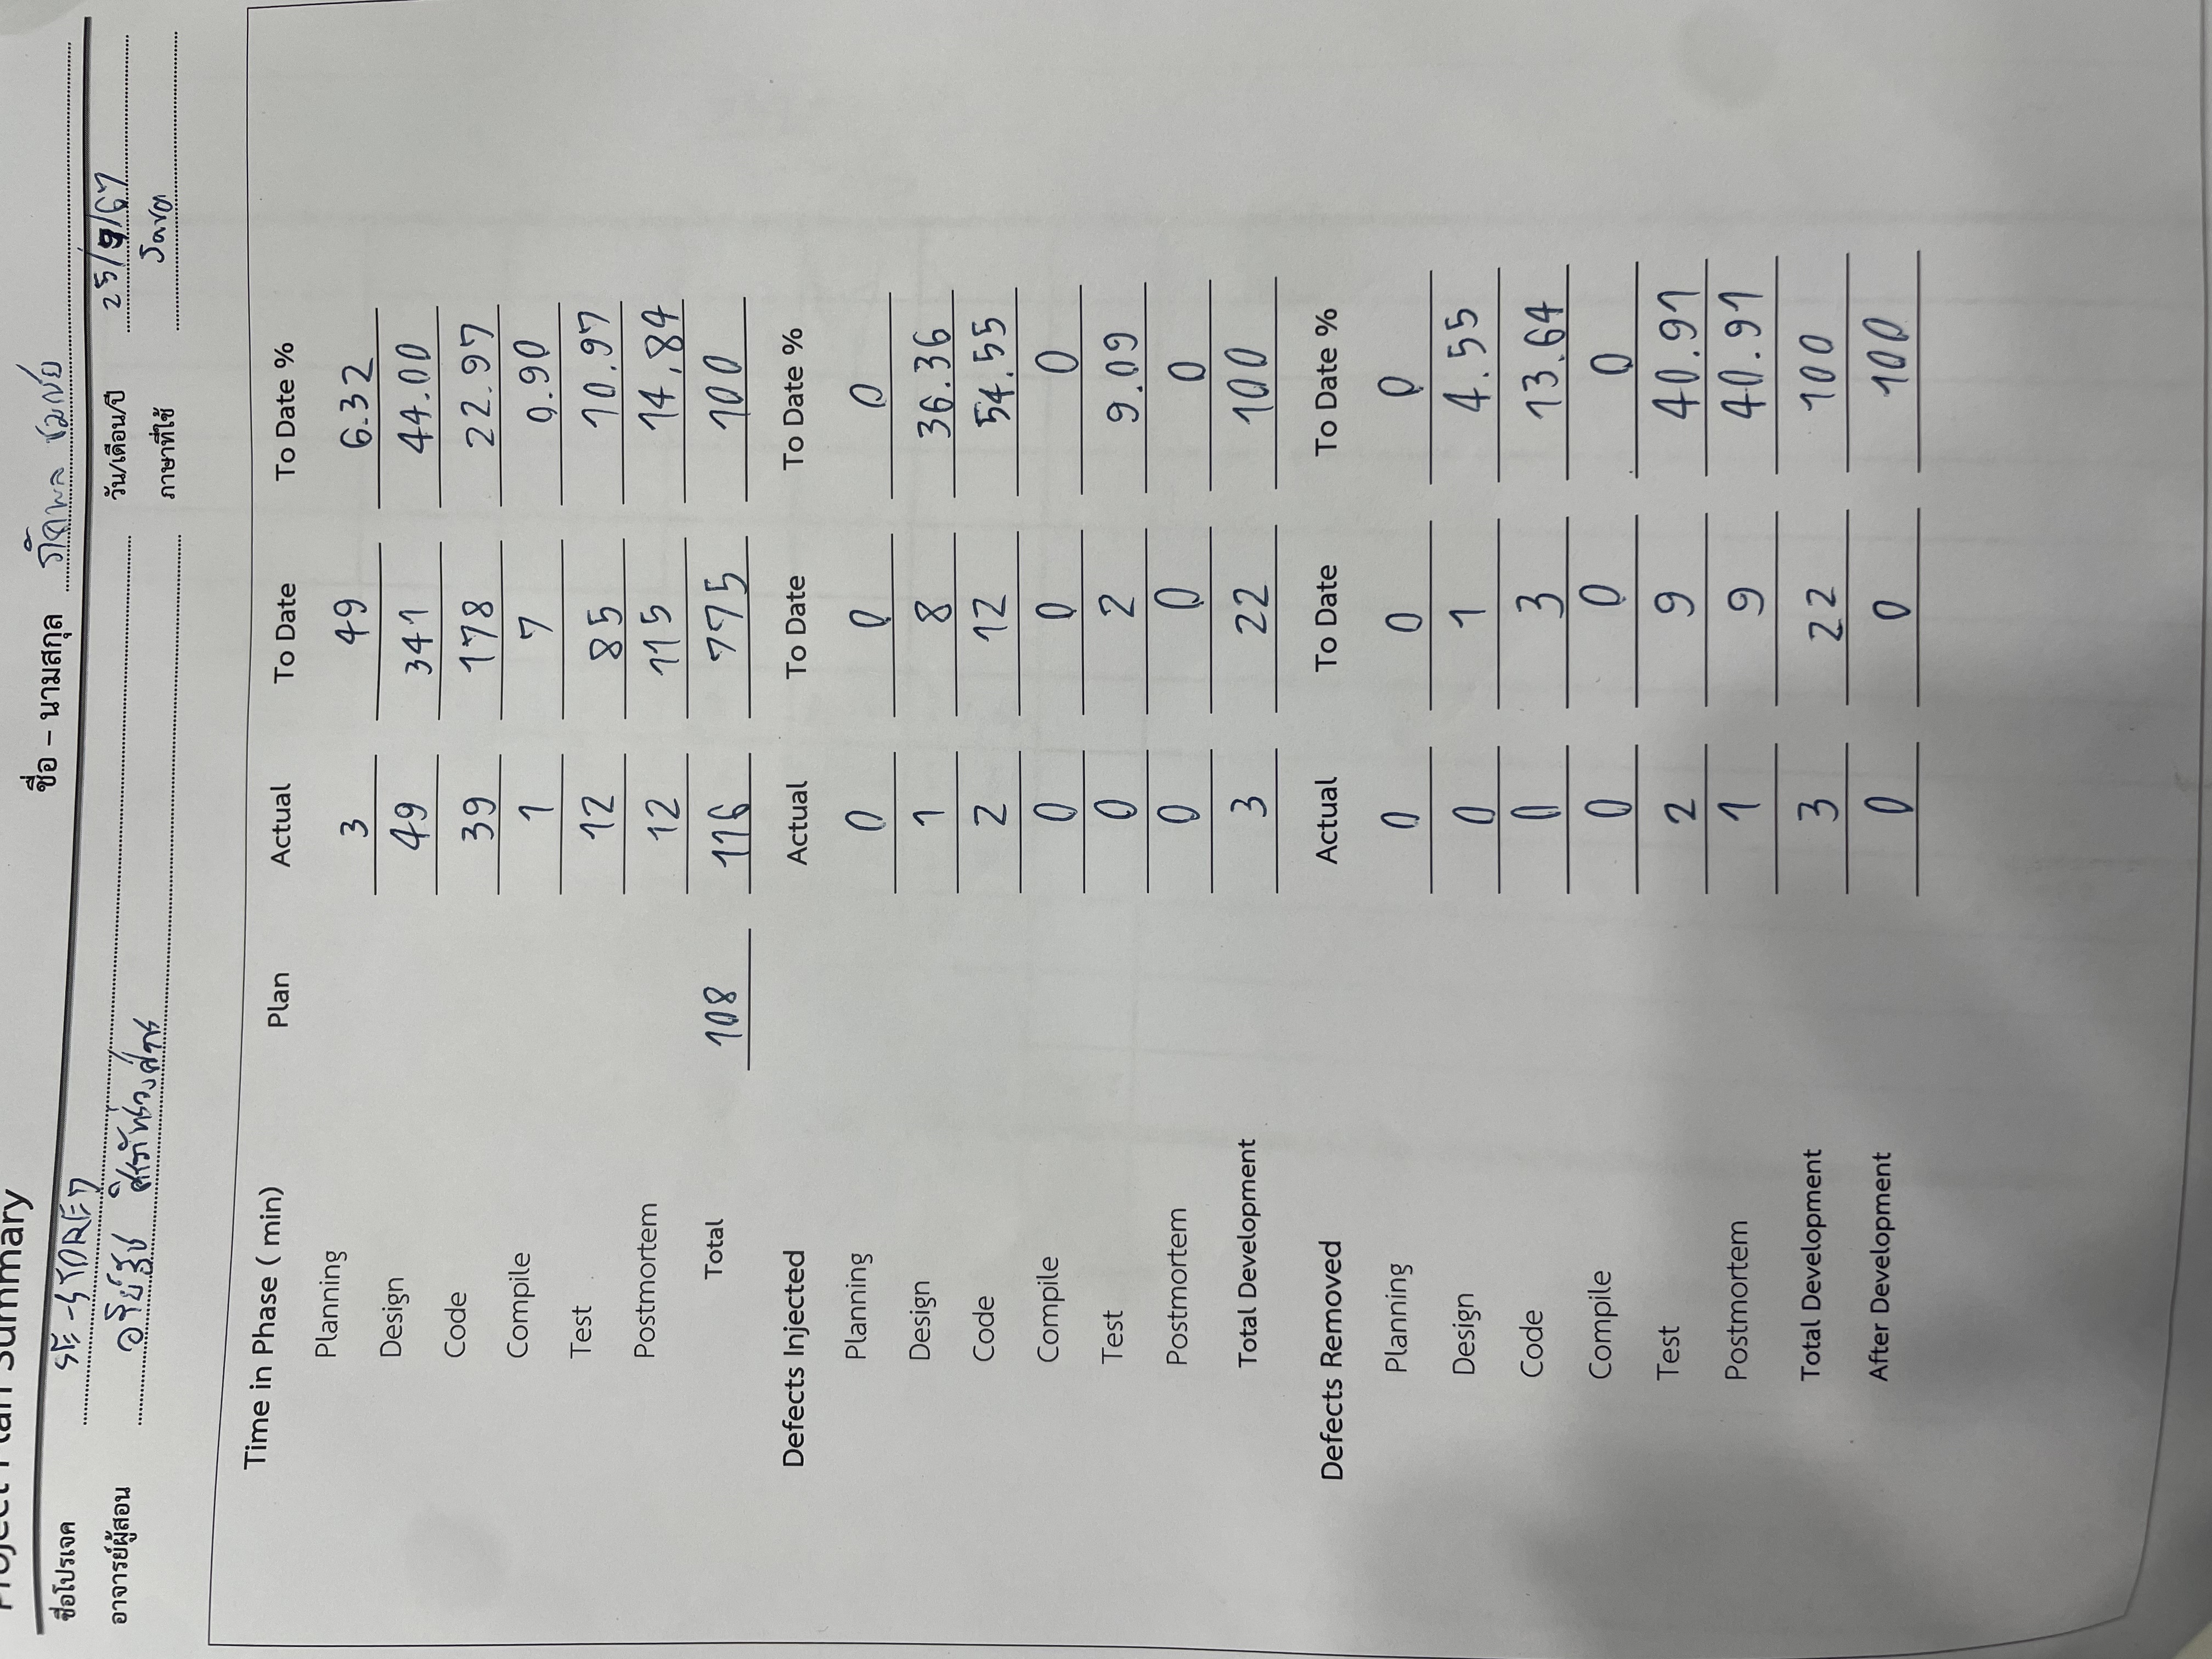 Project Plan Summary
ชื่อ – นามสกุล
ชื่อโปรเจค SE-STORE
อาจารย์ผู้สอน
วัน/เดือน/ปี 25/9/67
ภาษาที่ใช้ Java
Time in Phase ( min) Plan Actual To Date To Date %
Planning 3 49 6.32
Design 49 341 44.00
Code 39 178 22.97
Compile 1 7 0.90
Test 12 85 10.97
Postmortem 12 115 14.84
Total 108 116 775 100
Defects Injected Actual To Date To Date %
Planning 0 0 0
Design 1 8 36.36
Code 2 12 54.55
Compile 0 0 0
Test 0 2 9.09
Postmortem 0 0 0
Total Development 3 22 100
Defects Removed Actual To Date To Date %
Planning 0 0 0
Design 0 1 4.55
Code 0 3 13.64
Compile 0 0 0
Test 2 9 40.91
Postmortem 1 9 40.91
Total Development 3 22 100
After Development 0 0 100